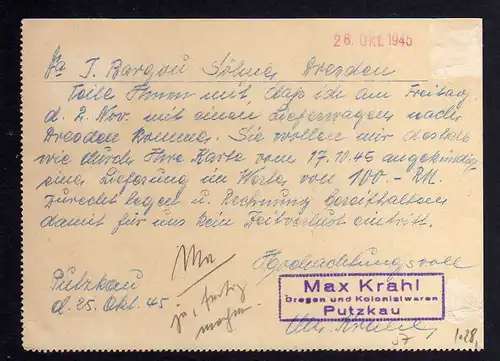 26. Okt. 1945
Fa J. Bargou Söhne, Dresden
Teile Ihnen mit, daß ich am Freitag
d. 2. Nov. mit einen Lieferwagen nach
Dresden komme. Sie wollen mir deshalb
wie durch Ihre Karte vom 17.10.45 angekündigt
eine Lieferung im Werte von 100.- RM.
zurecht legen u. Rechnung bereithalten
damit für uns kein Zeitverlust eintritt.
Hochachtungsvoll
Putzkau
d. 25. Okt. 45
Max Krahl
Drogen und Kolonialwaren
Putzkau
Max Krahl,
fertig
machen.
57
1.28,